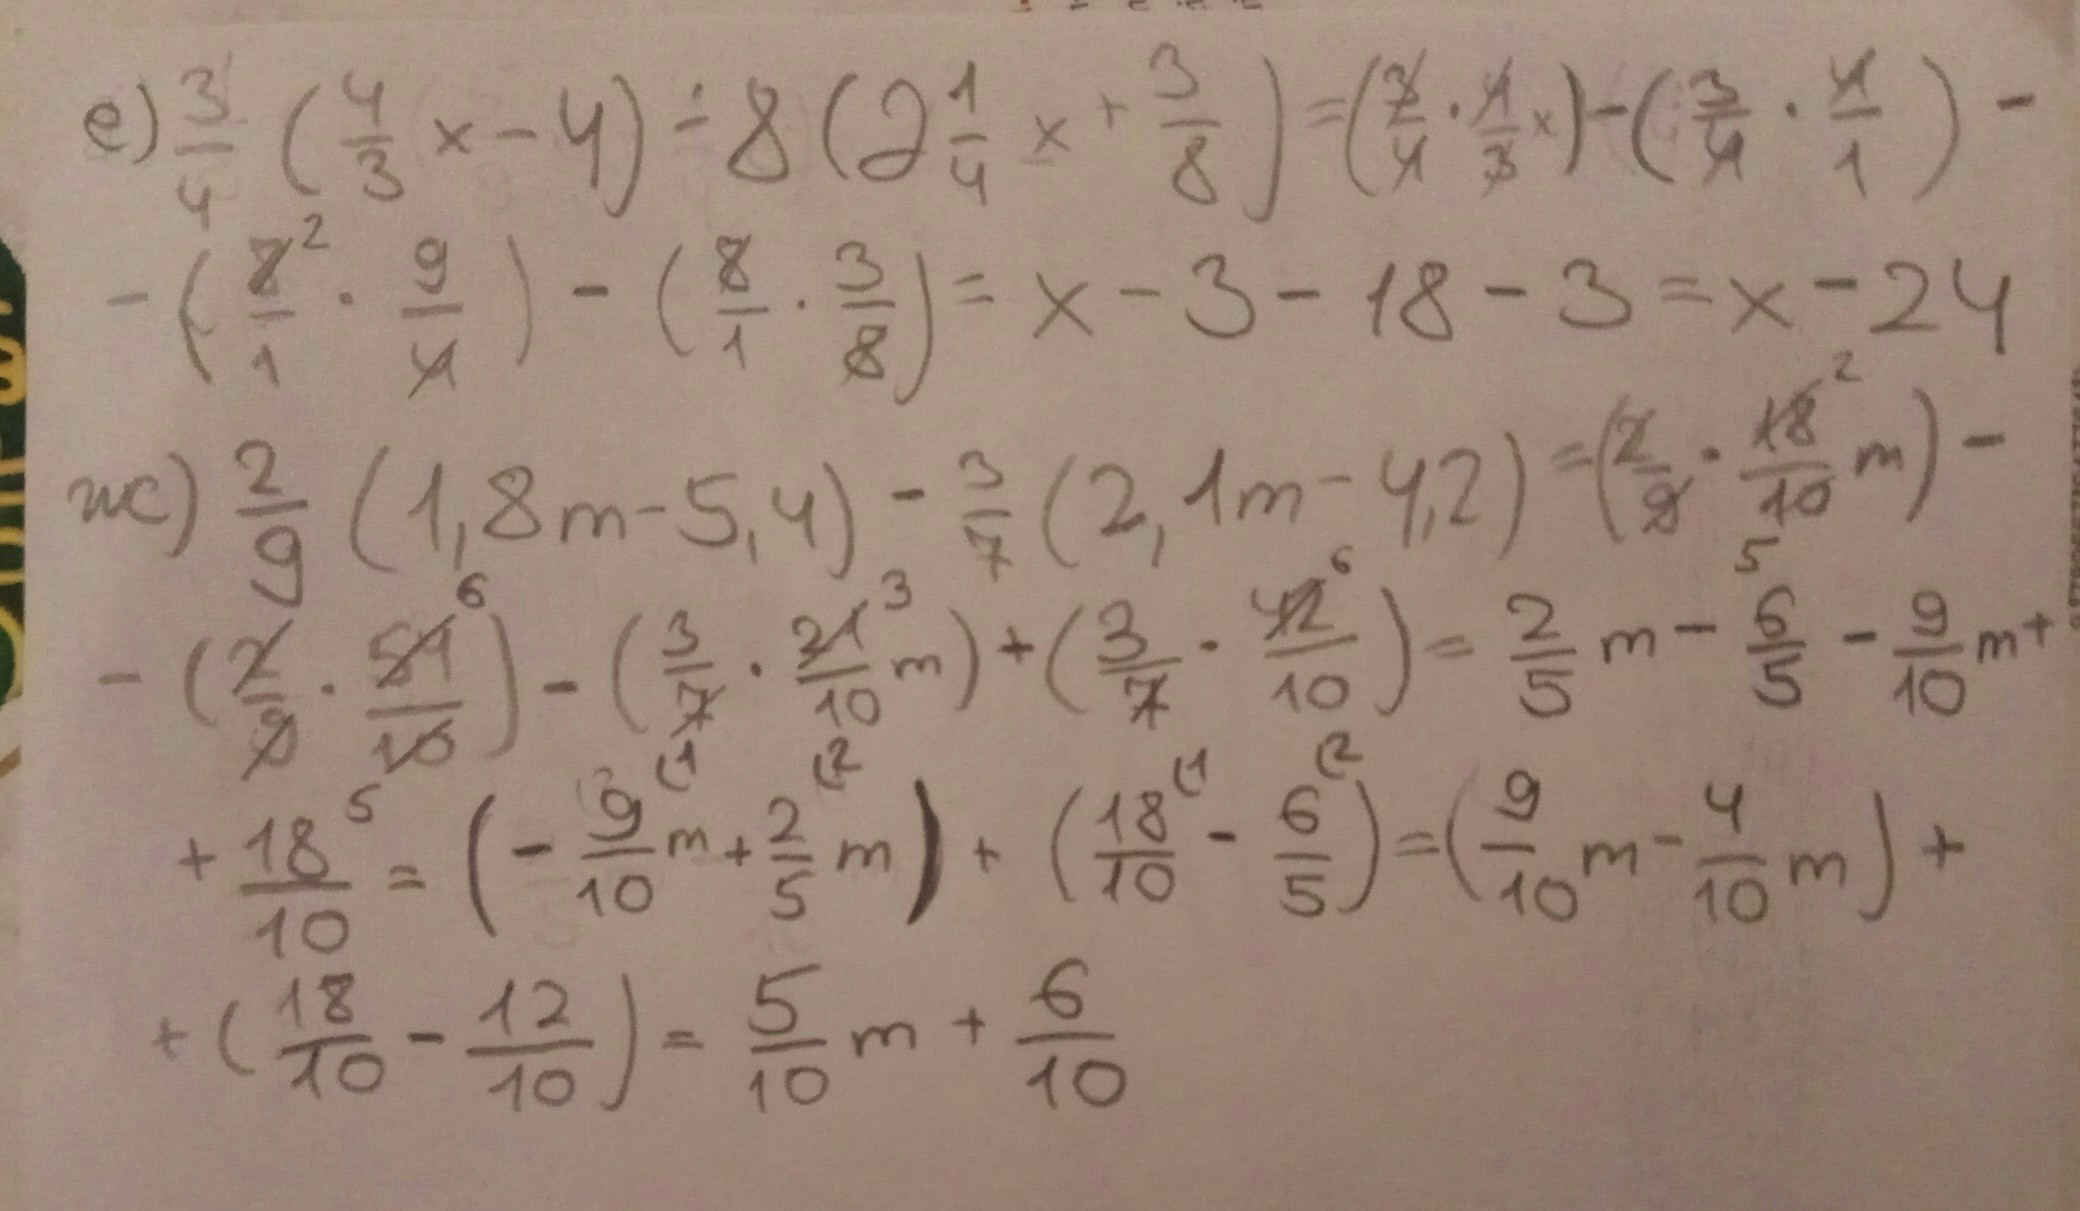 е) 3/4 (4/3 x - 4) - 8 (2 1/4 x + 3/8) = (3/4 · 4/3 x) - (3/4 · 4/1) -
- (8²/1 · 9/4) - (8/1 · 3/8) = x - 3 - 18 - 3 = x - 24
ж) 2/9 (1,8m - 5,4) - 3/7 (2,1m - 4,2) = (2/9 · 18²/10 5 m) -
- (2/9 · 54⁶/10 5) - (3/7 · 21³/10 m) + (3/7 · 42⁶/10) = 2/5 m - 6/5 - 9/10 m +
+ 18/10 = (- 9/10 (1 m + 2/5 (2 m) + (18/10 (1 - 6/5 (2) = (9/10 m - 4/10 m) +
+ (18/10 - 12/10) = 5/10 m + 6/10